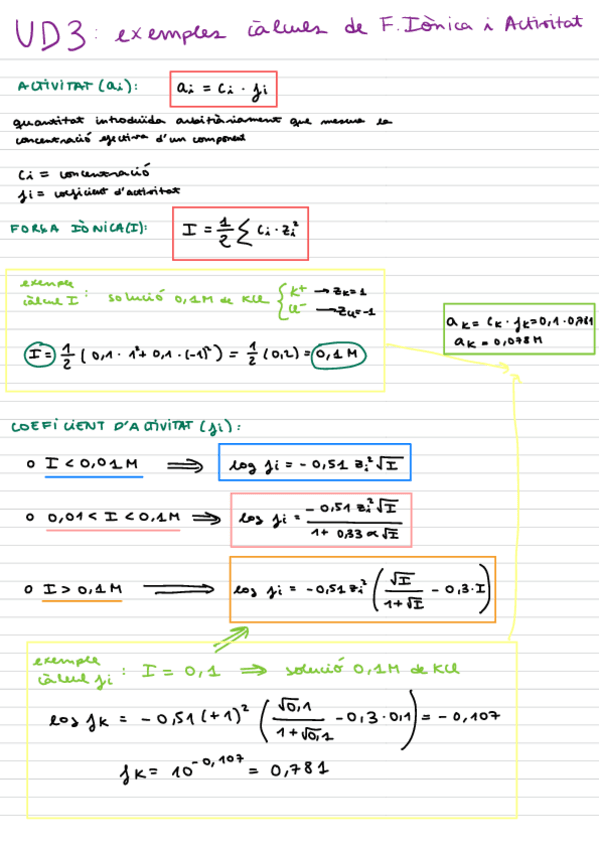 UD3: exemples càlculs de F. Iònica i Activitat
ACTIVITAT (ai): ai = Ci · fi
quantitat introduïda arbitràriament que mesura la
concentració efectiva d'un component
Ci = concentració
fi = coeficient d'activitat
FORÇA IÒNICA(I): I = 1/2 Σ Ci · zi²
exemple
càlcul I: solució 0,1M de KCl { K+ → ZK=1
Cl- → ZCl=-1
I = 1/2 (0,1 · 1² + 0,1 · (-1)²) = 1/2 (0,2) = 0,1 M
aK = CK · fK = 0,1 · 0,781
aK = 0,078 M
COEFICIENT D'ACTIVITAT (fi):
o I < 0,01M ⇒ log fi = - 0,51 zi² √I
o 0,01 < I < 0,1M ⇒ log fi = - 0,51 zi² √I / 1 + 0,33 α √I
o I > 0,1M ⇒ log fi = - 0,51 zi² ( √I / 1+√I - 0,3 · I )
exemple
càlcul fi: I = 0,1 ⇒ solució 0,1M de KCl
log fK = - 0,51 (+1)² ( √0,1 / 1+√0,1 - 0,3 · 0,1 ) = - 0,107
fK = 10^-0,107 = 0,781